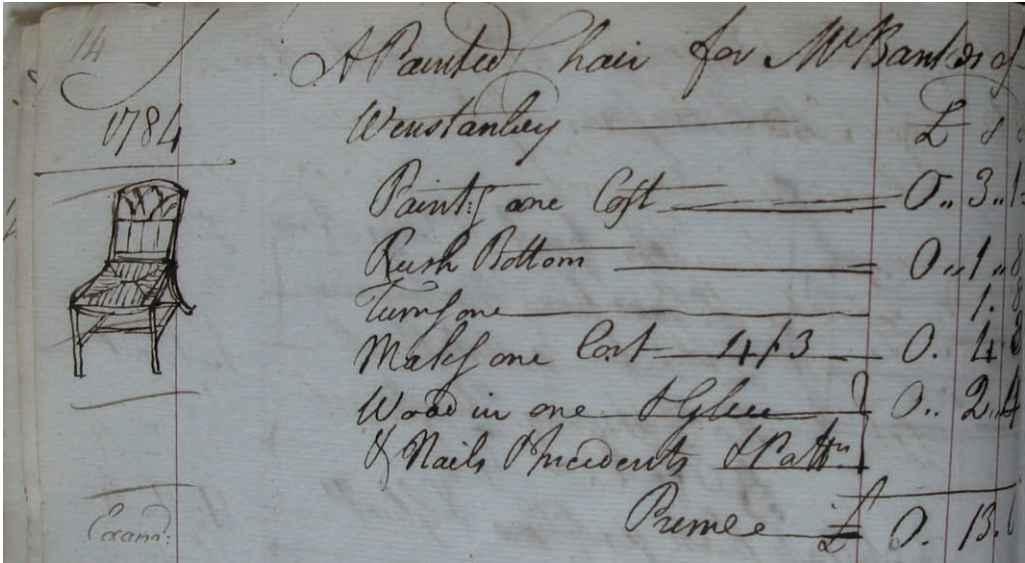 14
A Painted Chair for Mr Bankes of
1784 Winstanley £ s
Paintg one Cost 0,, 3,, 1
Rush Bottom 0,, 1,, 8
Turng one 1. 8
Makg one Cost 4/3 0. 4 3
Wood in one & Glue 0,, 2,, 4
& Nails & Incedents & Pattn
Examd: Prime £ 0. 13.